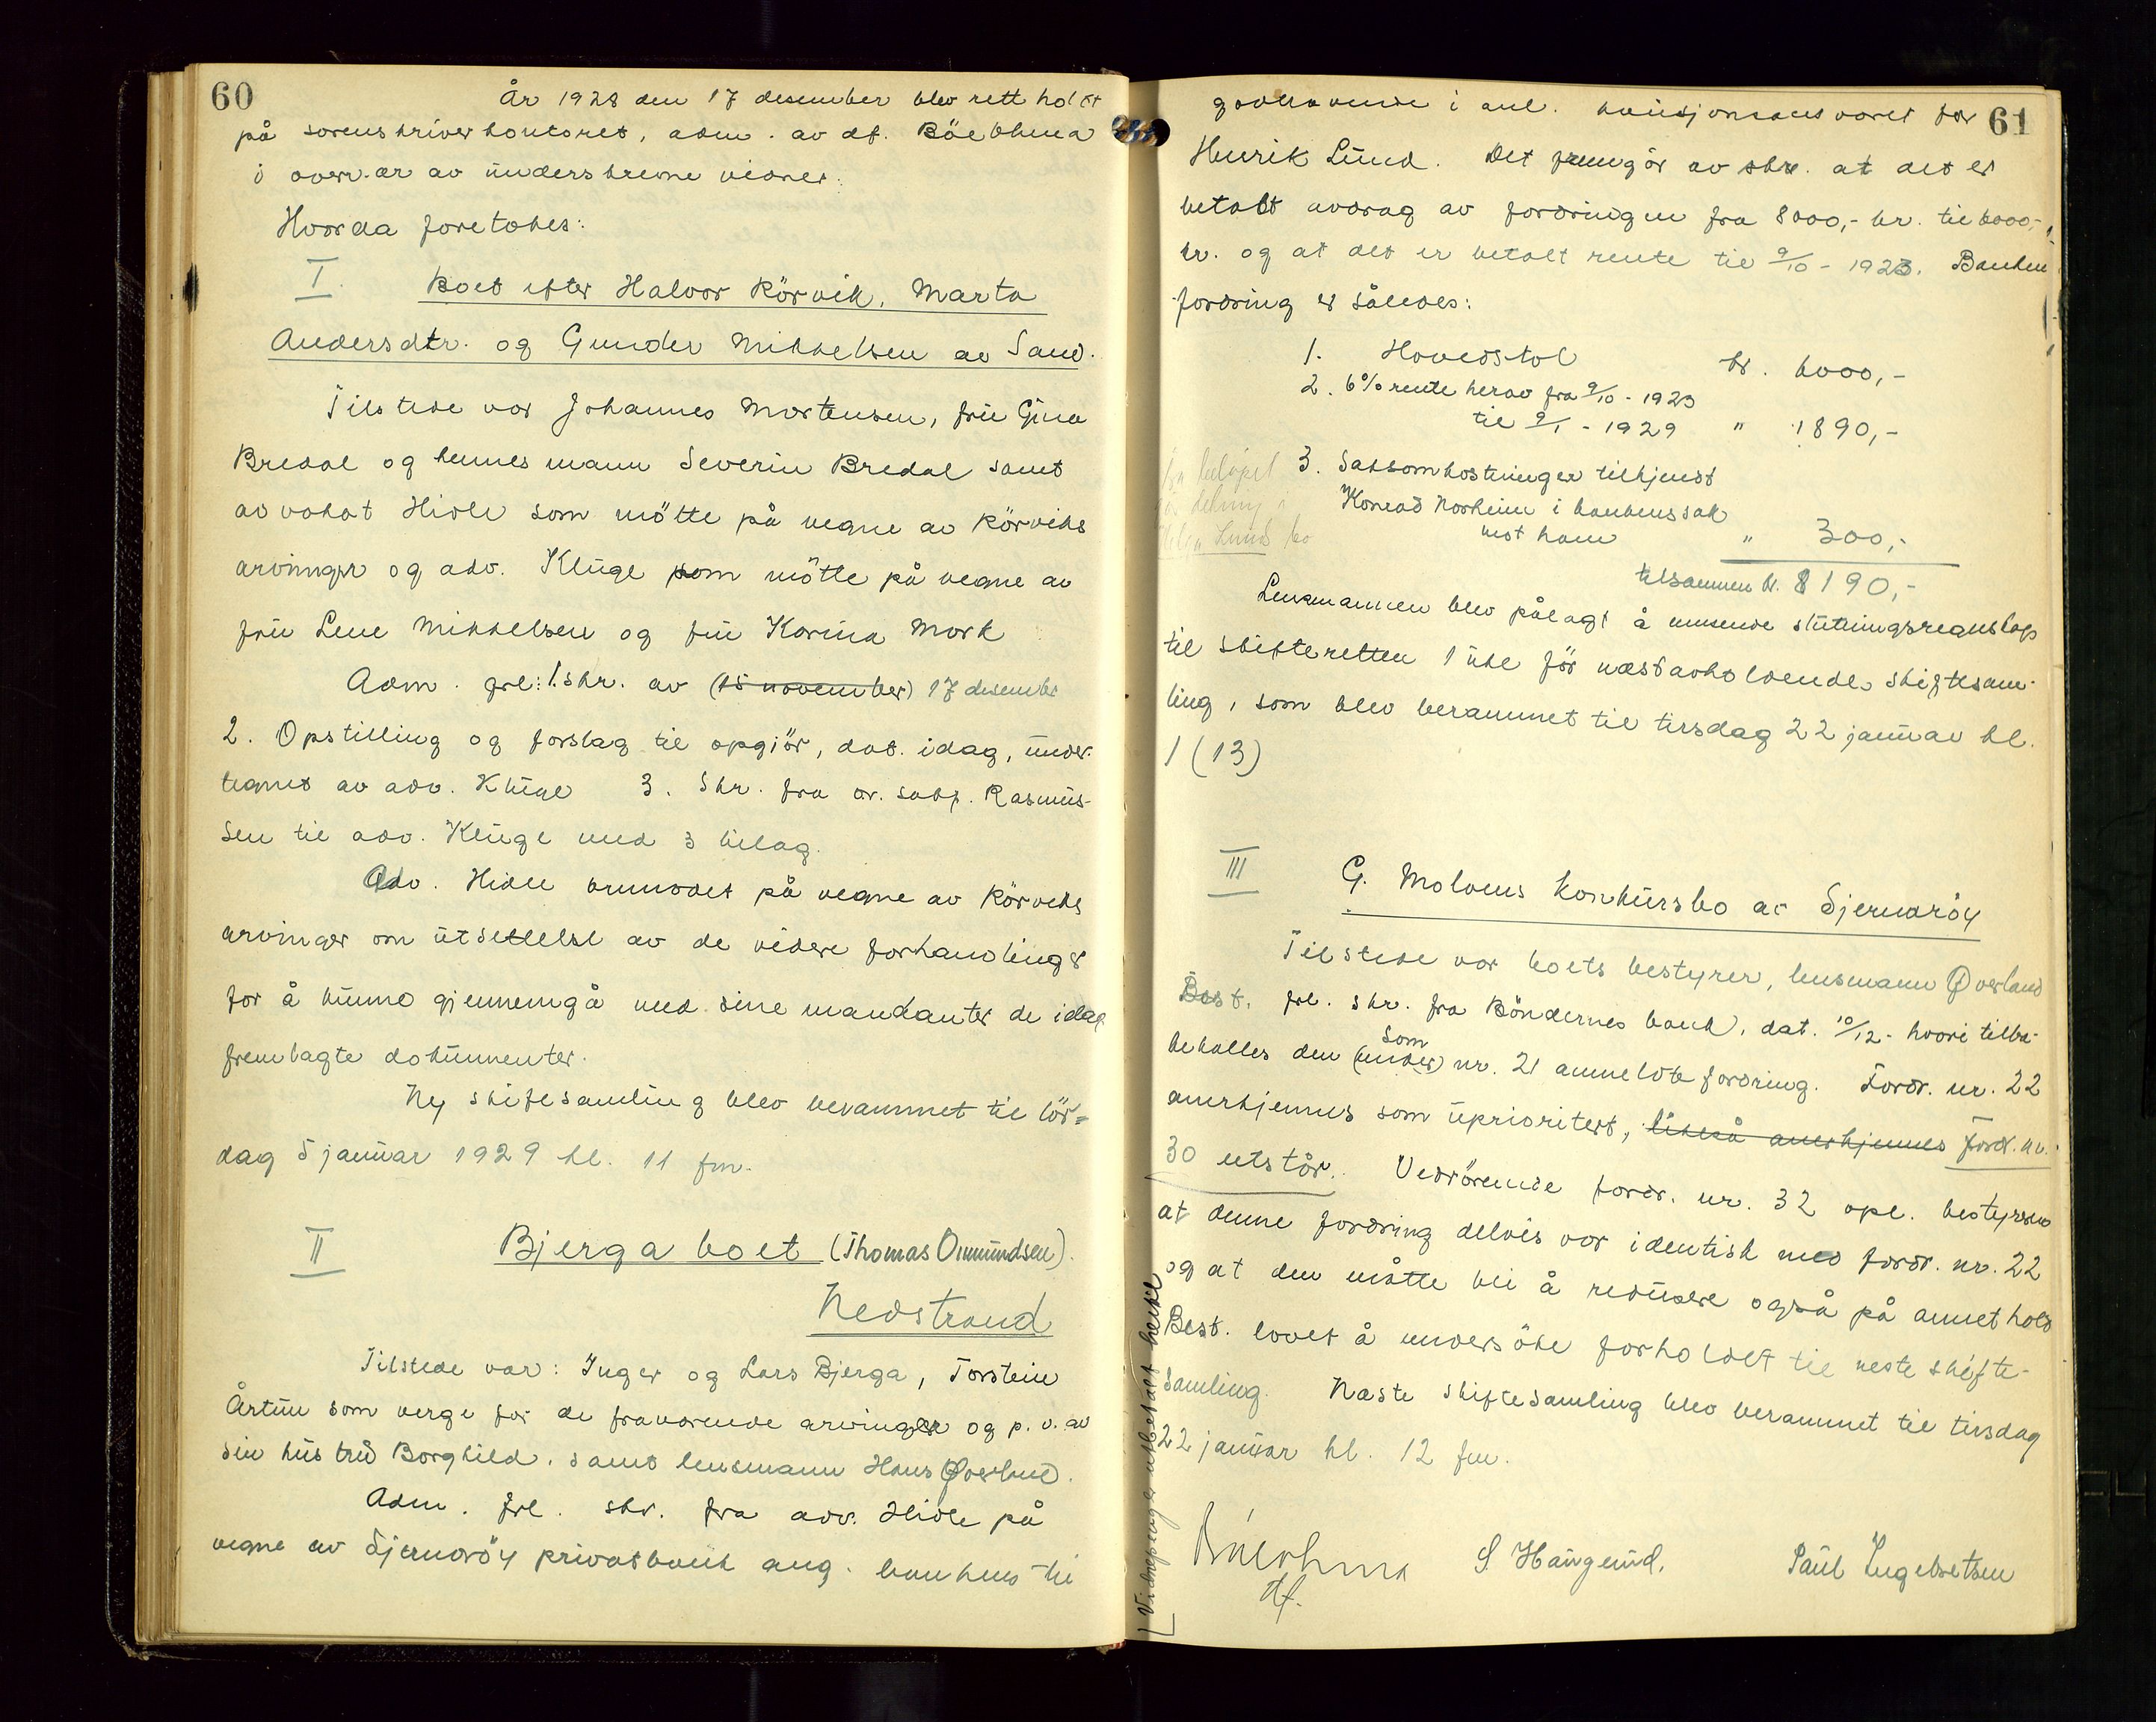 60
År 1928 den 17 desember blev rett holdt
på sorenskriverkontoret, adm. av df. Böe
i overvær av underskrevne vidner.
Hvorda foretokes:
I. Boet efter Halvor Körvik, Marta
Andersdtr. og Gunder Mikkelsen av Sand.
Tilstede var Johannes Mortensen, fru Gina
Bredal og hennes mann Severin Bredal samt
advokat Hidle som mötte på vegne av Körviks
arvinger og adv. Kluge som mötte på vegne av
fru Lene Mikkelsen og fru Karina Mork
Adm. frl: 1. skr. av (15 november) 17 desember
2. Opstilling og forslag til opgiör, dat. idag, under-
tegnet av adv. Kluge 3. Skr. fra or. sakf. Rasmus-
sen til adv. Kluge med 3 bilag.
Adv. Hidle anmodet på vegne av Körviks
arvinger om utsettelse av de videre forhandlinger
for å kunne gjennemgå med sine mandanter de idag
fremlagte dokumenter.
Ny skiftesamling blev berammet til lör=
dag 5 januar 1929 kl. 11 fm.
II Bjerga boet (Thomas Ommundsen).
Nedstrand
Tilstede var: Inger og Lars Bjerga, Torstein
Årtun som verge for de fraværende arvinger og p. v. av
sin hustru Borghild, samt lensmann Hans Øverland.
Adm. frl. skr. fra adv. Hidle på
vegne av Sjernaröy privatbank ang. bankens til
61
godehavende i anl. kausjonsansvaret for
Henrik Lund. Det fremgår av skr. at det er
betalt avdrag av fordringen fra 8000,- kr. til 6000,-
kr. og at det er betalt rente til 9/10 - 1923. Banken
fordring er således:
1. Hovedstol kr. 6000,-
2. 6% rente herav fra 9/10 - 1923
til 9/1 - 1929 " 1890,-
3. Saksomkostninger tilkjent
Konrad Norheim i bankens sak
mot ham " 300,-
tilsammen kr. 8190,-
Lensmannen blev pålagt å innsende slutningsregnskap
til skifteretten 1 uke för næstavholdende skiftesam-
ling, som blev berammet til tirsdag 22 januar kl.
1 (13)
III G. Molvens konkursbo av Sjernaröy
Tilstede var boets bestyrer, lensmann Øverland
Best. frl. skr. fra Böndernes bank, dat. 10/12 - hvori tilba-
som
keholdes den (under) nr. 21 anmeldte fordring. Fordr. nr. 22
anerkjennes som uprioritert, likeså anerkjennes Ford. nr.
30 utstår. Vedrörende fordr. nr. 32 opl. bestyreren
at denne fordring delvis var identisk med fordr. nr. 22
og at den måtte bli å redusere også på annet hold
Best. lovet å undersöke forholdet til neste skifte-
samling. Næste skiftesamling blev berammet til tirsdag
22 januar kl. 12 fm.
S. Haugland. Paul Ingebretsen
df.